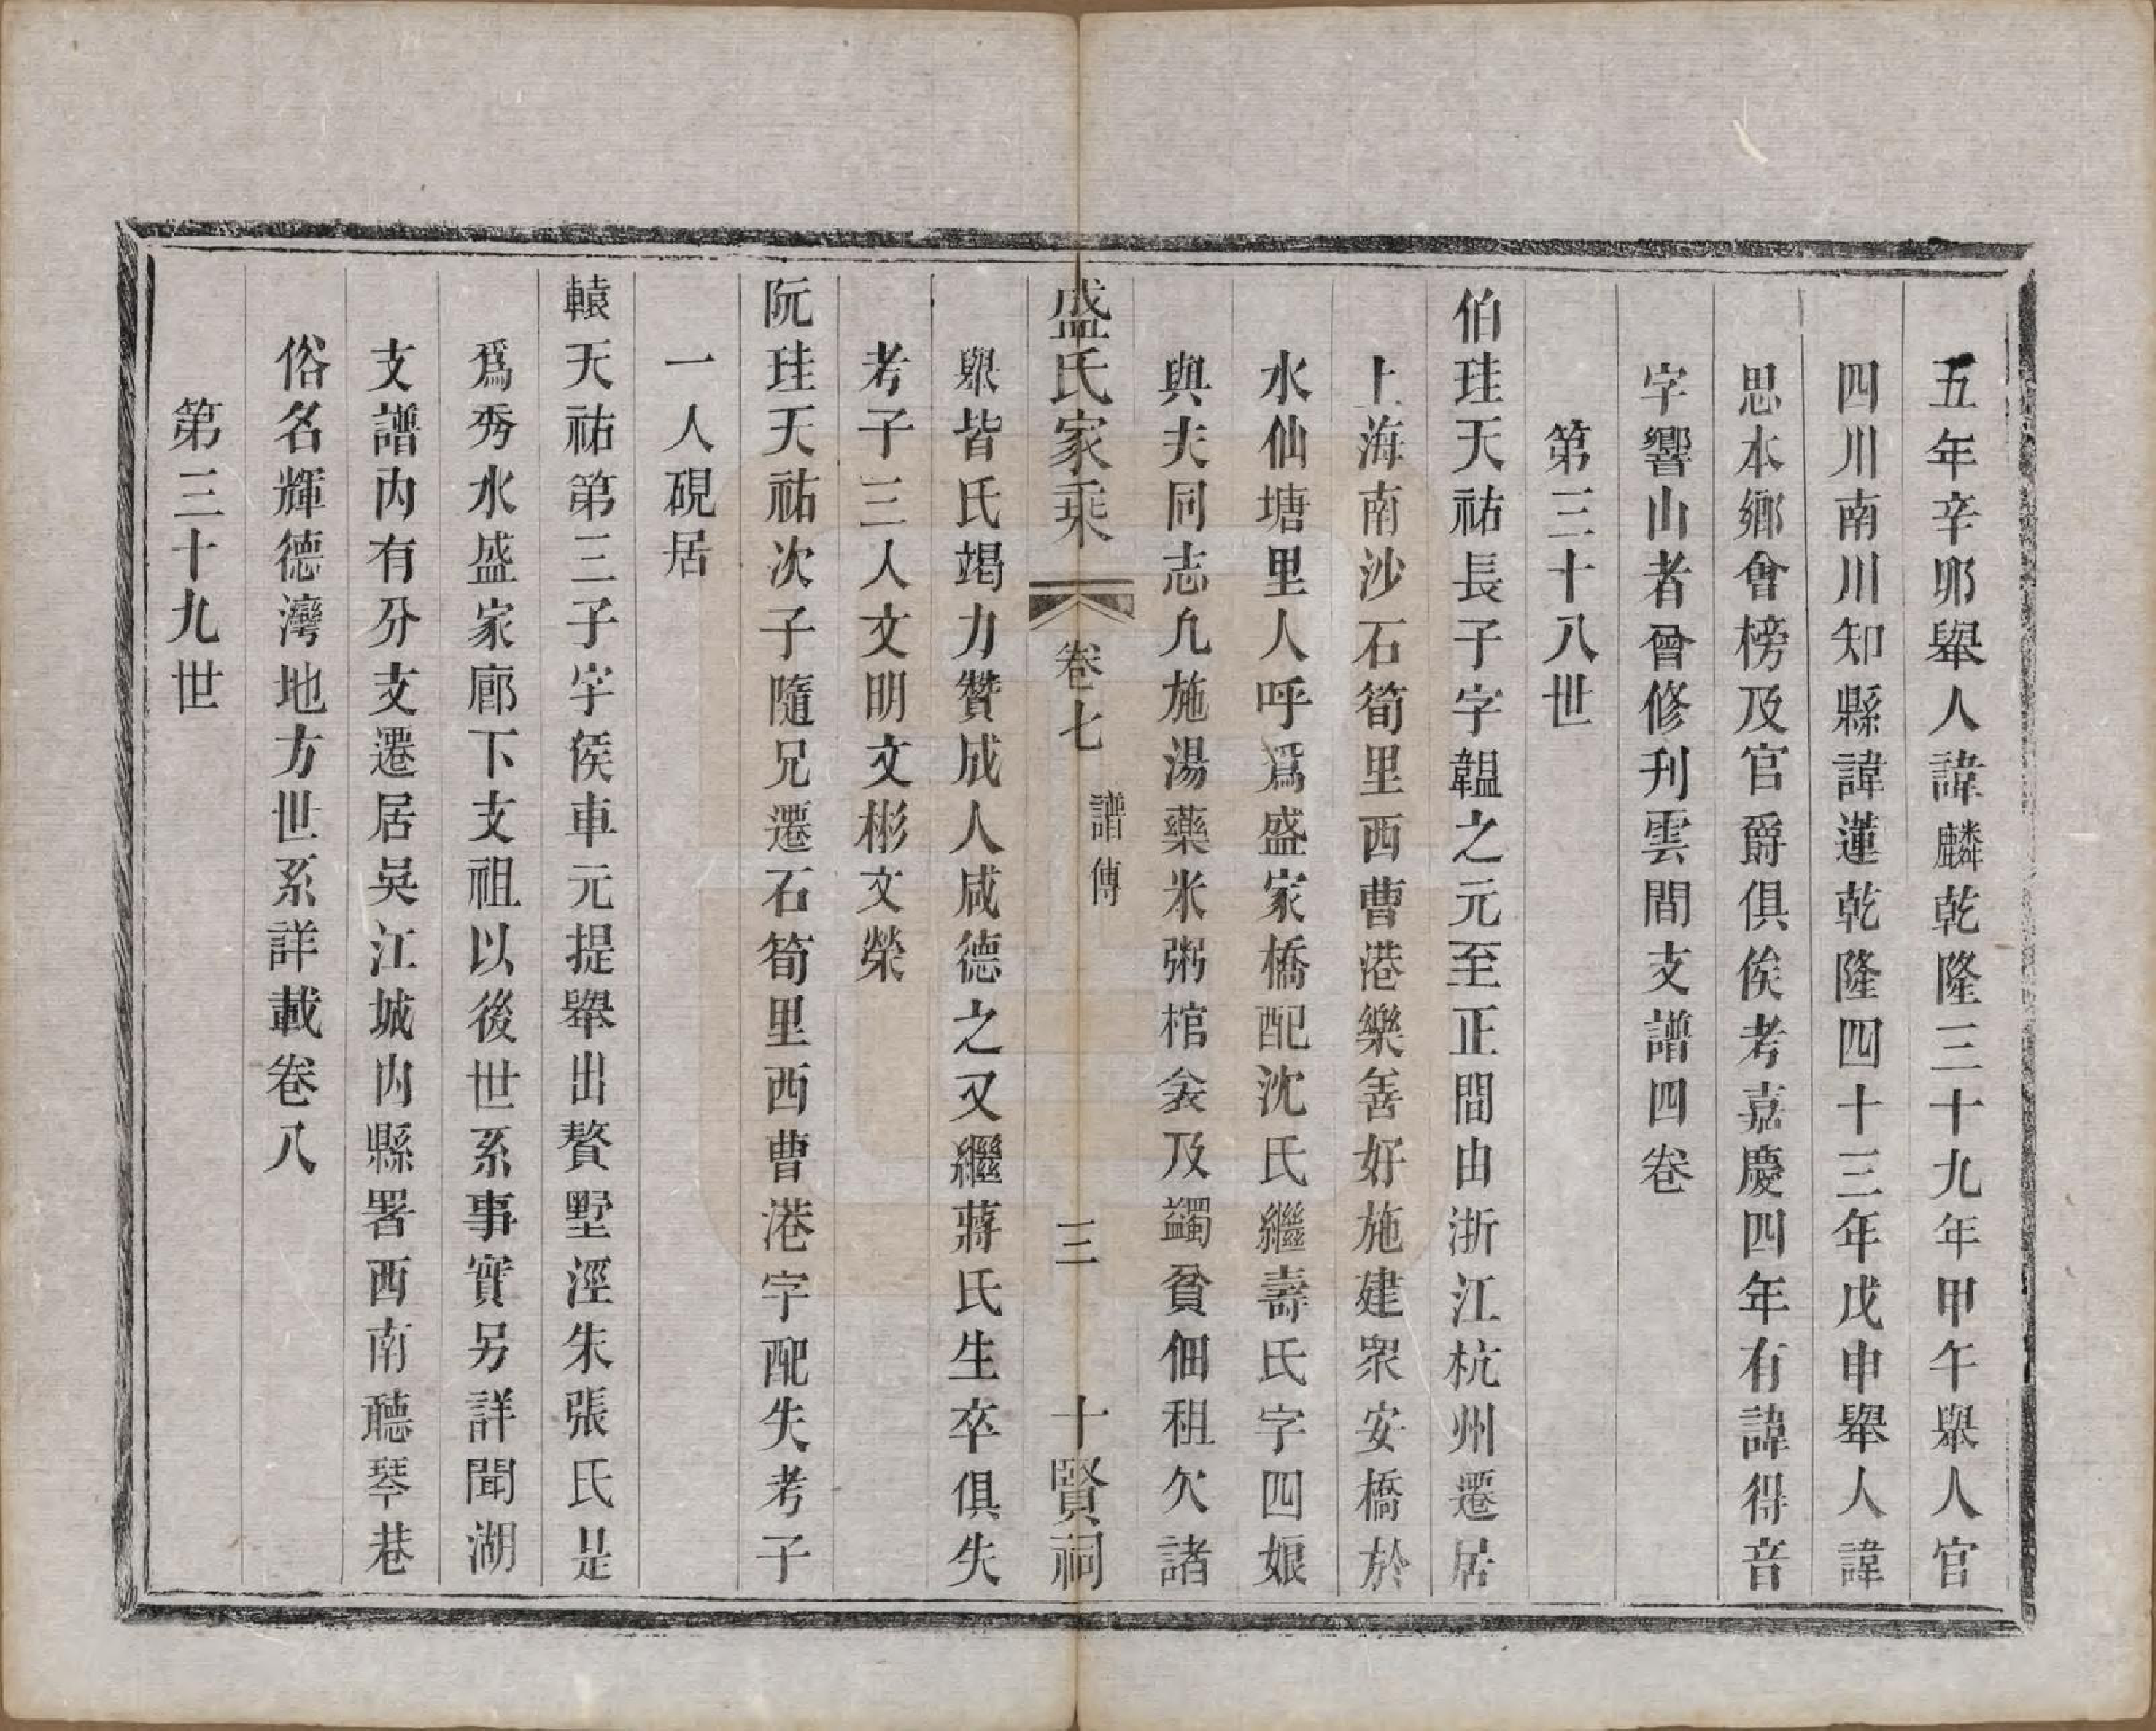 五年辛卯舉人諱麟乾隆三十九年甲午舉人官
四川南川知縣諱蓮乾隆四十三年戊申舉人諱
思本鄉會榜及官爵俱俟考嘉慶四年有諱得音
字響山者曾修刊雲間支譜四卷
第三十八世
伯珪天祐長子字韞之元至正間由浙江杭州遷居
上海南沙石筍里西曹港樂善好施建衆安橋於
水仙塘里人呼爲盛家橋配沈氏繼壽氏字四娘
與夫同志凢施湯藥米粥棺衾及蠲貧佃租欠諸
盛氏家乘
卷七
譜傳
三
十賢祠
舉皆氏竭力贊成人咸德之又繼蔣氏生卒俱失
考子三人文明文彬文榮
阮珪天祐次子隨兄遷石筍里西曹港字配失考子
一人硯居
轅天祐第三子字侯車元提舉出贅墅涇朱張氏是
爲秀水盛家廊下支祖以後世系事實另詳聞湖
支譜內有分支遷居吳江城內縣署西南聽琴巷
俗名輝德灣地方世系詳載卷八
第三十九世